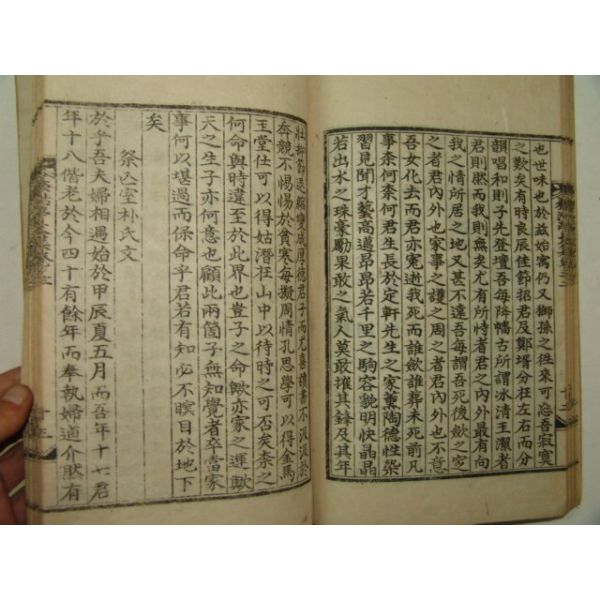 也世味也於玆始寓仍又獅孫之徃來可忘吾寂寞
之歎矣有時良辰佳節招君及鄭壻分左右而分
韻唱和則子先登壇吾每降幡古所謂冰淸玉潔者
君則然而我則無矣尤有所恃者君之內外最有向
我之情所居之地又甚不遠吾每謂吾死後斂之窆
之者君內外也家事之護之周之者君內外也不意
吾女化去而君亦寃逝我死而誰斂誰葬未死前凡
事柰何柰何君生長於定軒先生之家薰陶德性染
習見聞才藝高邁昂昂若千里之駒容貌明快晶晶
若出水之珠豪勵果敢之氣人莫敢摧其鋒及其年
壯折節 變成厚德君子而尤喜讀書不汲汲於
奔競不惕惕於貧寒每擬周情孔思學可以得金馬
玉堂仕可以得姑潛在山中以待時之可否矣柰之
何命與時違至於此界也豈子之命歟亦家之運歟
天之生子亦何意也顧此兩箇子無知覺者卒當家
事何以堪過而保命乎君若有知必不瞑目於地下
矣
祭亡室朴氏文
於乎吾夫婦相遇始於甲辰夏五月而吾年十七君
年十八偕老於今四十有餘年而奉執婦道介然有